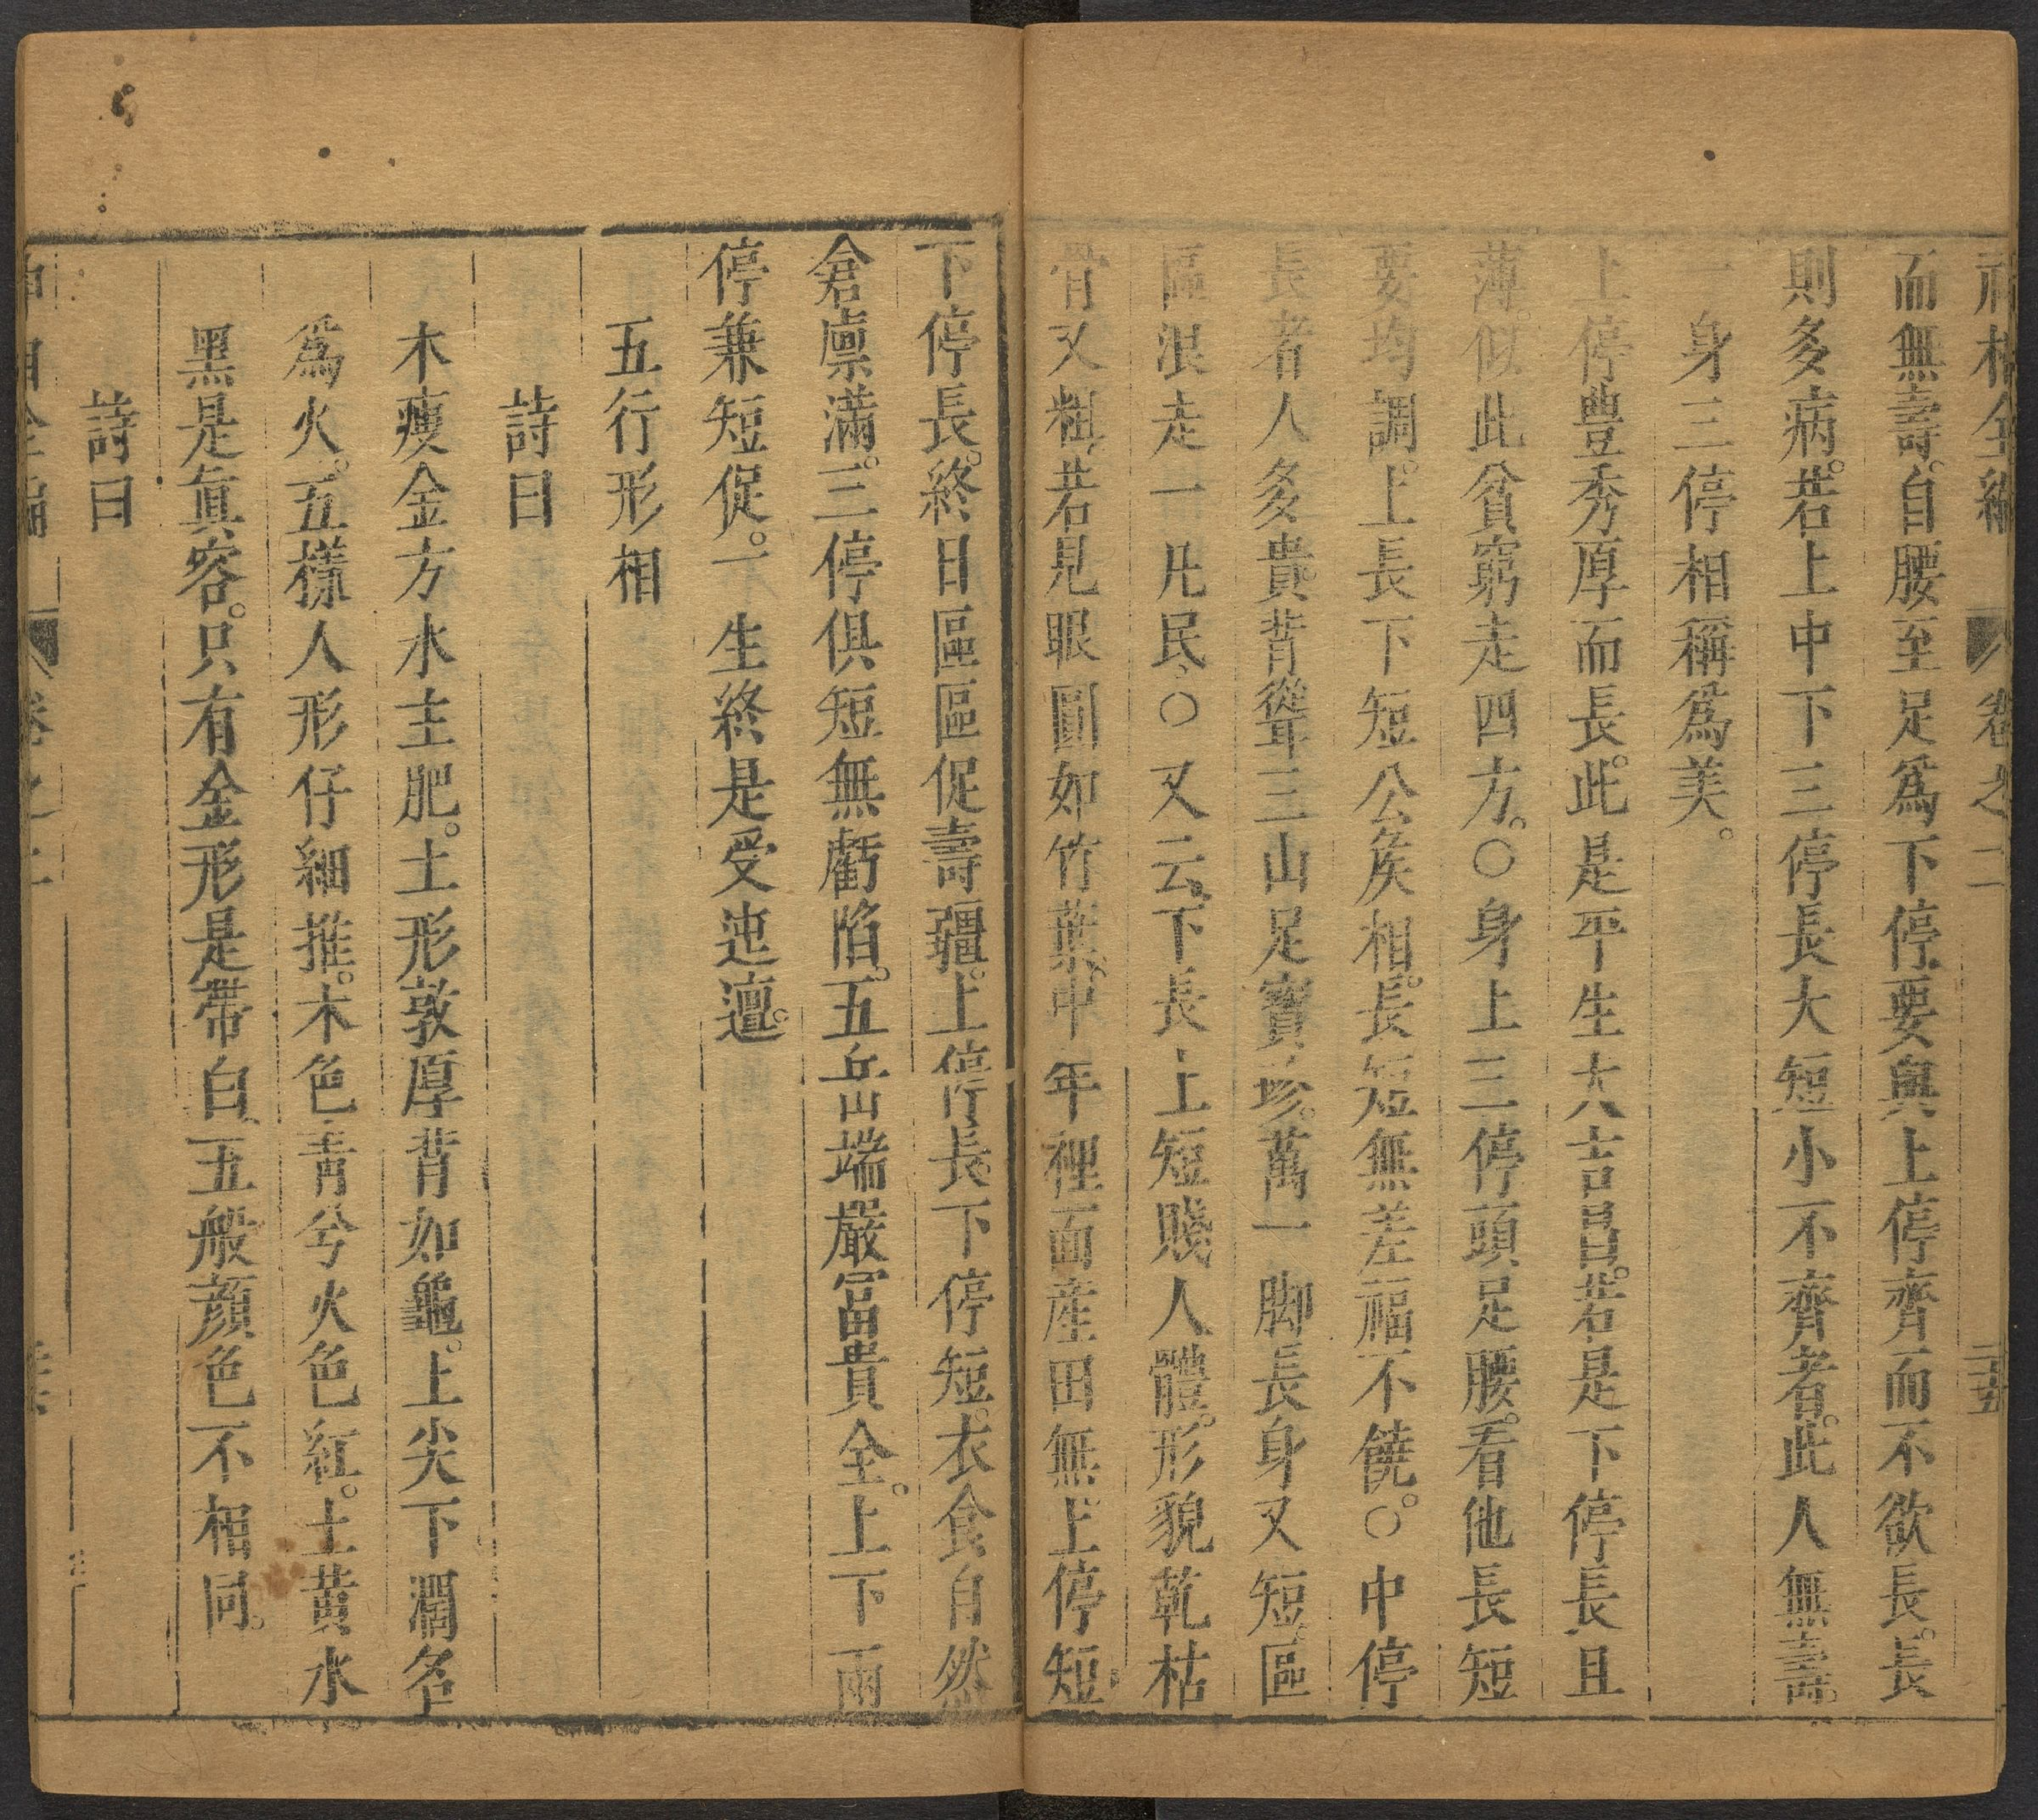 神相全編 卷之二 二十五
而無壽。自腰至足爲下停、要與上停齊而不欲長。長
則多病。若上中下三停長大短小不齊者。此人無壽。
一身三停相稱爲美。
上停豊秀厚而長。此是平生大吉昌。若是下停長且
薄。似此貧窮走四方。○身上三停頭足腰。看他長短
要均調。上長下短公矦相。長短無差福不饒。○中停
長者人多貴。背聳三山足寳珍。萬一脚長身又短。區
區浪走一凡民、○又云、下長上短賤人體。形貌乾枯
骨又粗、若見眼圓如竹葉、中年裡面産田無。上停短、
下停長。終日區區促壽疆。上停長、下停短。衣食自然
倉廪滿。三停俱短無虧陷。五岳端嚴冨貴全。上下兩
停兼短促。一生終是受迍邅。
五行形相
詩曰
木瘦金方水主肥。土形敦厚背如龜。上尖下濶名
爲火。五樣人形仔細推。木色青兮火色紅。土黄水
黑是眞容。只有金形是帶白、五般顔色不相同。
詩曰
神相全編 卷之二